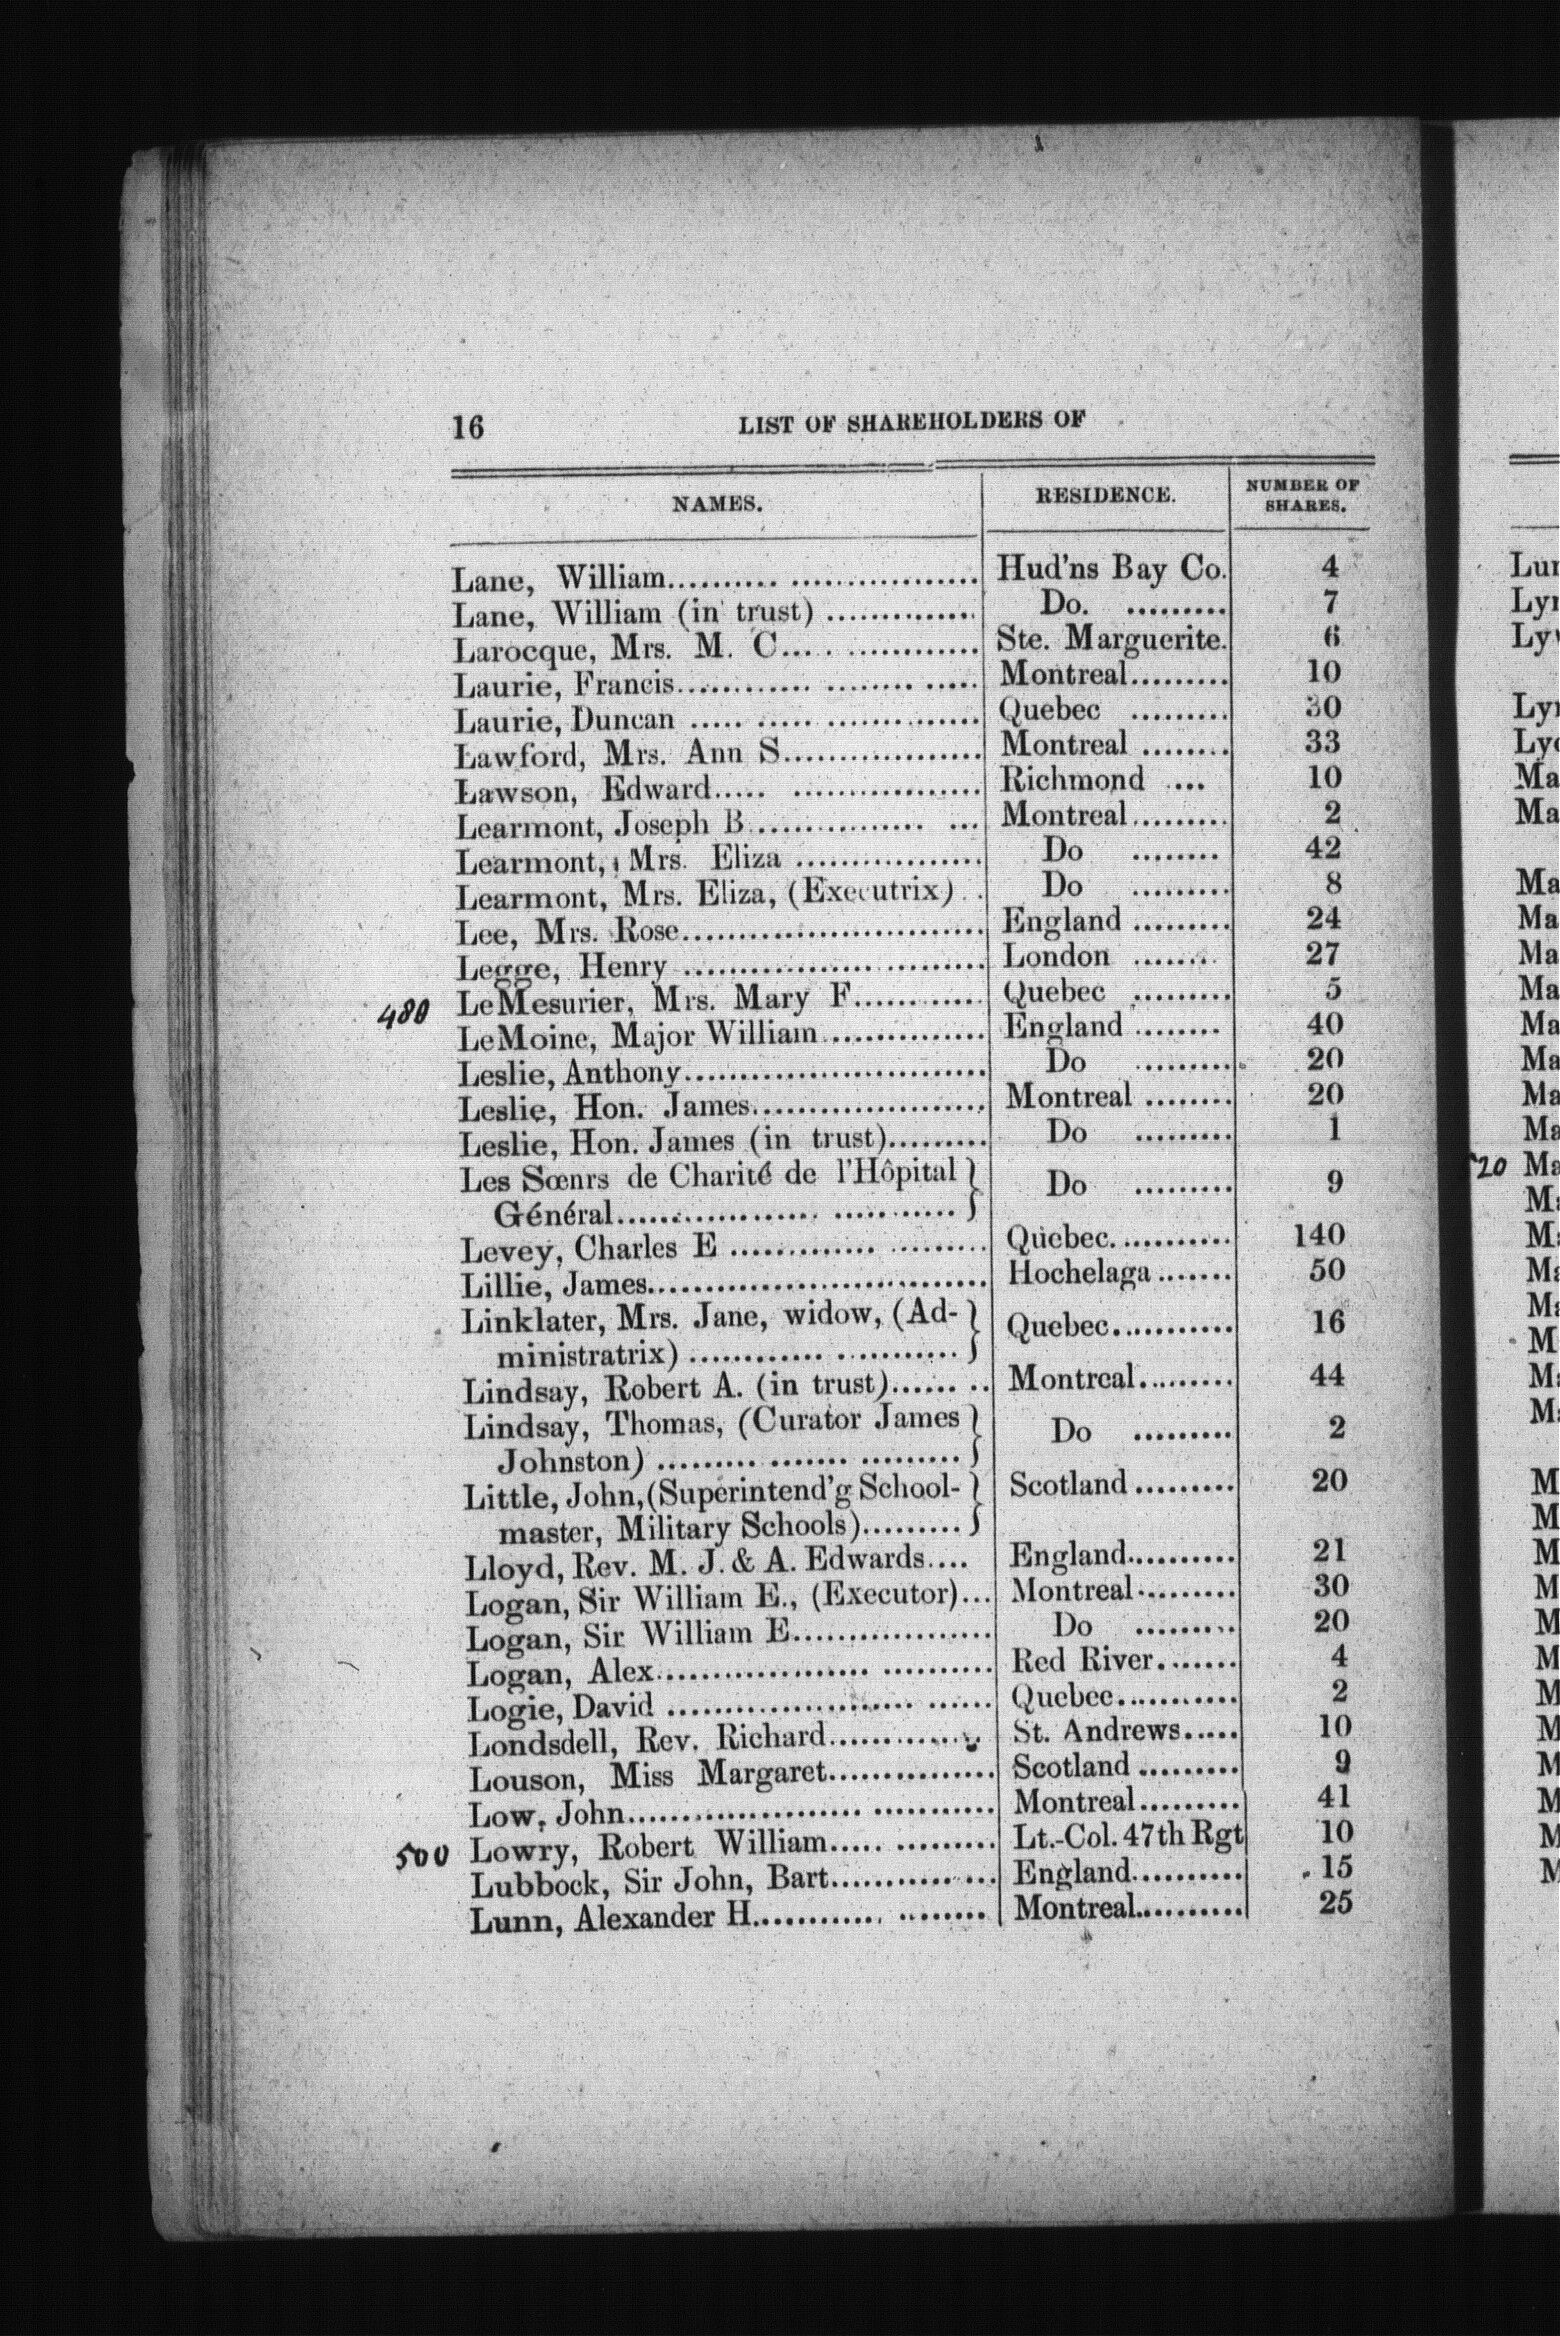 16 LIST OF SHAREHOLDERS OF
NAMES. RESIDENCE. NUMBER OF SHARES.
Lane, William.......... ................. Hud'ns Bay Co. 4
Lane, William (in trust) ............. Do. ......... 7
Larocque, Mrs. M. C.... ............ Ste. Marguerite. 6
Laurie, Francis............ ........ ..... Montreal......... 10
Laurie, Duncan ..... ..... ............. Quebec ......... 30
Lawford, Mrs. Ann S................. Montreal ........ 33
Lawson, Edward..... ................. Richmond ... 10
Learmont, Joseph B............... ... Montreal......... 2
Learmont, Mrs. Eliza ................ Do ........ 42
Learmont, Mrs. Eliza, (Executrix) .. Do ......... 8
Lee, Mrs. Rose........................... England ......... 24
Legge, Henry ................. ......... London ....... 27
480 LeMesurier, Mrs. Mary F........... Quebec ......... 5
LeMoine, Major William............... England ........ 40
Leslie, Anthony........................... Do ......... 20
Leslie, Hon. James..................... Montreal ........ 20
Leslie, Hon. James (in trust)......... Do ......... 1
Les Sœnrs de Charité de l'Hôpital
Général...................... ........... Do ......... 9
Levey, Charles E ............. ......... Quebec........... 140
Lillie, James................................ Hochelaga....... 50
Linklater, Mrs. Jane, widow, (Ad-
ministratrix) ............ ........... Quebec........... 16
Lindsay, Robert A. (in trust)...... .. Montreal......... 44
Lindsay, Thomas, (Curator James
Johnston) ......... ....... ......... Do ......... 2
Little, John,(Superintend'g School- Scotland ......... 20
master, Military Schools).........
Lloyd, Rev. M. J. & A. Edwards.... England.......... 21
Logan, Sir William E., (Executor)... Montreal......... 30
Logan, Sir William E.................. Do ......... 20
Logan, Alex................... .......... Red River....... 4
Logie, David ...................... ...... Quebec........... 2
Londsdell, Rev. Richard............. St. Andrews..... 10
Louson, Miss Margaret............... Scotland ......... 9
Low, John..................... ........... Montreal......... 41
500 Lowry, Robert William..... ......... Lt.-Col. 47th Rgt 10
Lubbock, Sir John, Bart............... England.......... 15
Lunn, Alexander H............ ........ Montreal.......... 25
Lun
Lyn
20